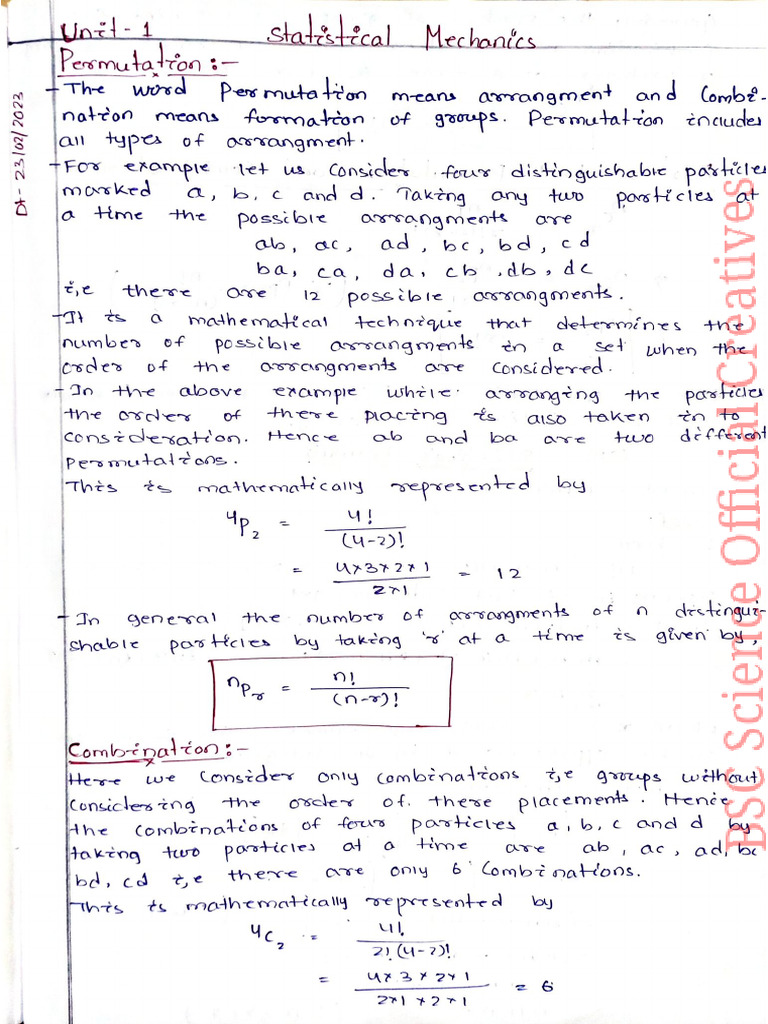 Unit-1 Statistical Mechanics
Permutation:-
Dt - 23/02/2023
- The word Permutation means arrangment and Combi-
nation means formation of groups. Permutation includes
all types of arrangment.
- For example let us Consider four distinguishable particles
marked a, b, c and d. Taking any two particles at
a time the possible arrangments are
ab, ac, ad, bc, bd, cd
ba, ca, da, cb, db, dc
i,e there are 12 possible arrangments.
- It is a mathematical technique that determines the
number of possible arrangments in a set when the
order of the arrangments are considered.
- In the above example while arranging the particles
the order of there placing is also taken in to
consideration. Hence ab and ba are two different
permutations.
This is mathematically represented by
⁴P₂ = 4! / (4-2)!
= 4×3×2×1 / 2×1 = 12
- In general the number of arrangments of n distingui-
shable particles by taking 'r' at a time is given by,
ⁿPᵣ = n! / (n-r)!
Combination:-
Here we Consider only combinations i,e groups without
Considering the order of there placements. Hence
the combinations of four particles a, b, c and d by
taking two particles at a time are ab, ac, ad, bc
bd, cd i,e there are only 6 Combinations.
This is mathematically represented by
⁴C₂ = 4! / 2!(4-2)!
= 4×3×2×1 / 2×1×2×1 = 6
BSC Science Official Creatives